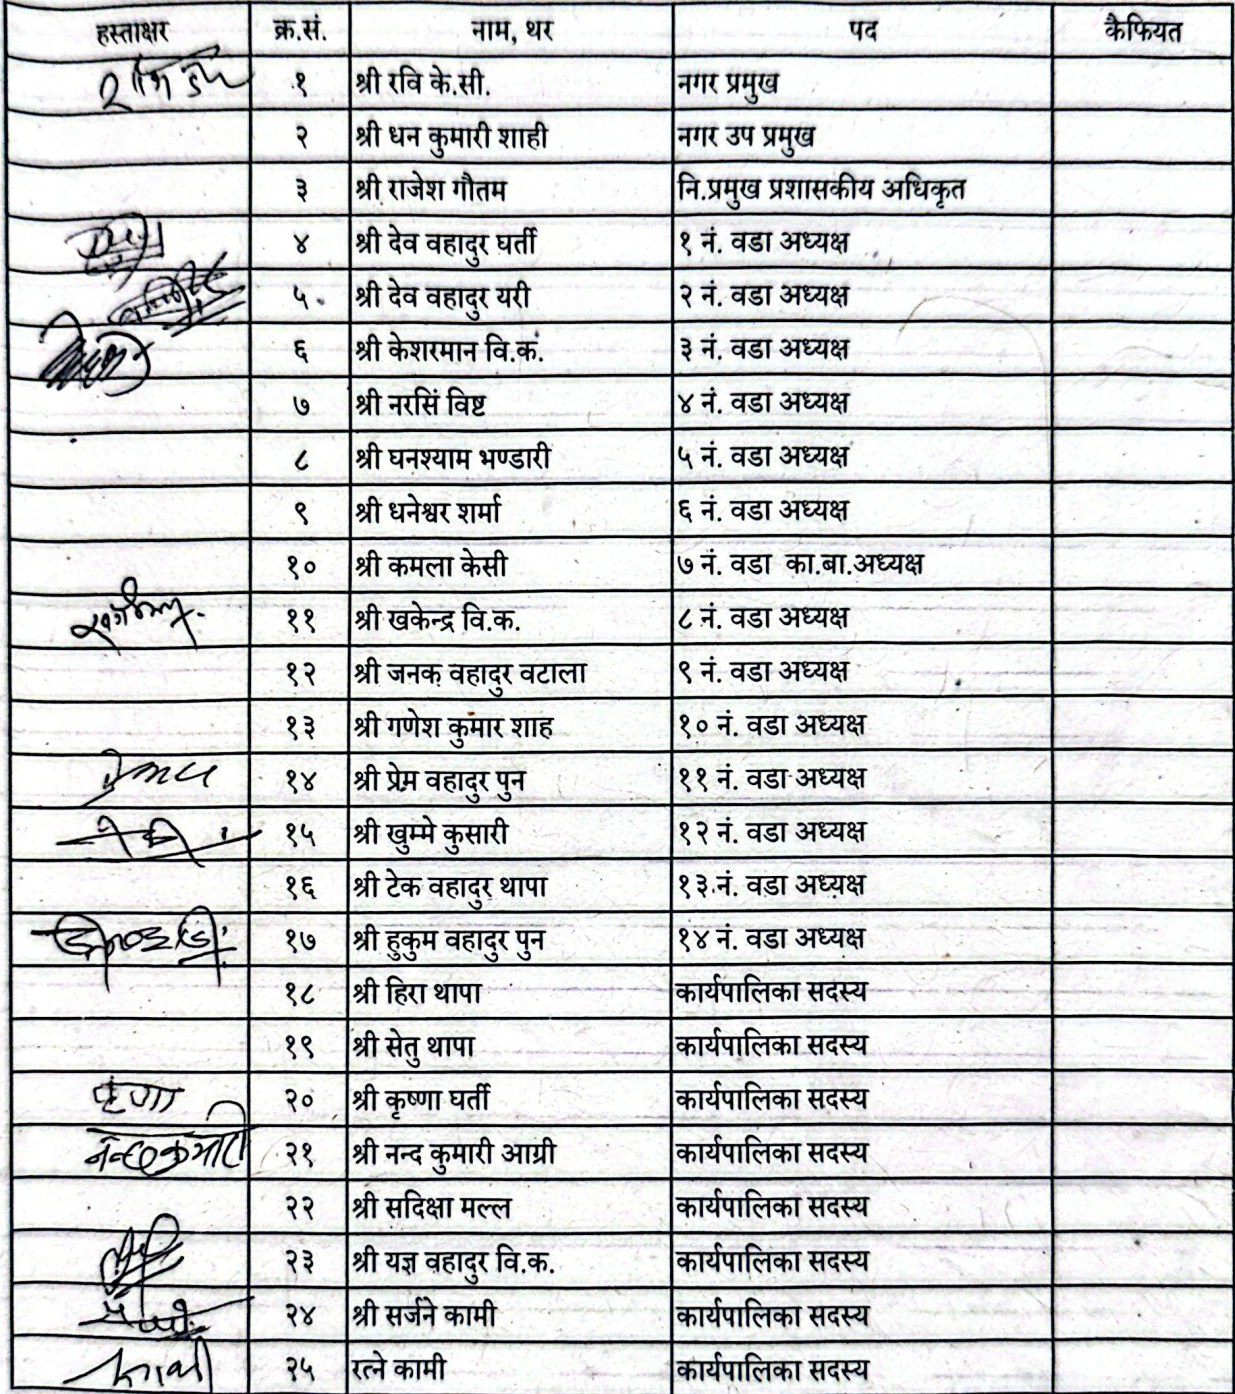 हस्ताक्षर क्र.सं. नाम, थर पद कैफियत
१ श्री रवि के.सी. नगर प्रमुख
२ श्री धन कुमारी शाही नगर उप प्रमुख
३ श्री राजेश गौतम नि.प्रमुख प्रशासकीय अधिकृत
४ श्री देव वहादुर घर्ती १ नं. वडा अध्यक्ष
५ श्री देव वहादुर यरी २ नं. वडा अध्यक्ष
६ श्री केशरमान वि.क. ३ नं. वडा अध्यक्ष
७ श्री नरसिं विष्ट ४ नं. वडा अध्यक्ष
८ श्री घनश्याम भण्डारी ५ नं. वडा अध्यक्ष
९ श्री धनेश्वर शर्मा ६ नं. वडा अध्यक्ष
१० श्री कमला केसी ७ नं. वडा का.बा.अध्यक्ष
११ श्री खकेन्द्र वि.क. ८ नं. वडा अध्यक्ष
१२ श्री जनक वहादुर वटाला ९ नं. वडा अध्यक्ष
१३ श्री गणेश कुमार शाह १० नं. वडा अध्यक्ष
१४ श्री प्रेम वहादुर पुन ११ नं. वडा अध्यक्ष
१५ श्री खुम्मे कुसारी १२ नं. वडा अध्यक्ष
१६ श्री टेक वहादुर थापा १३ नं. वडा अध्यक्ष
१७ श्री हुकुम वहादुर पुन १४ नं. वडा अध्यक्ष
१८ श्री हिरा थापा कार्यपालिका सदस्य
१९ श्री सेतु थापा कार्यपालिका सदस्य
२० श्री कृष्णा घर्ती कार्यपालिका सदस्य
नन्दकुमारी २१ श्री नन्द कुमारी आग्री कार्यपालिका सदस्य
२२ श्री सदिक्षा मल्ल कार्यपालिका सदस्य
२३ श्री यज्ञ वहादुर वि.क. कार्यपालिका सदस्य
२४ श्री सर्जने कामी कार्यपालिका सदस्य
२५ रत्ने कामी कार्यपालिका सदस्य